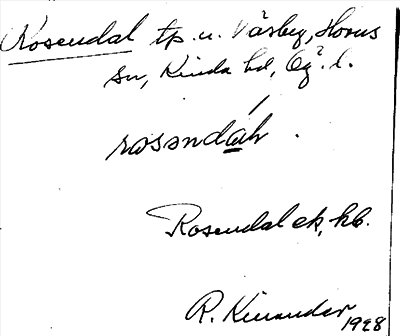 Rosendal tp. u. Väsby, Horns
sn, Kinda hd, Ög. l.
rosəndαh .
Rosendal ek, hb.
R. Kinander
1928